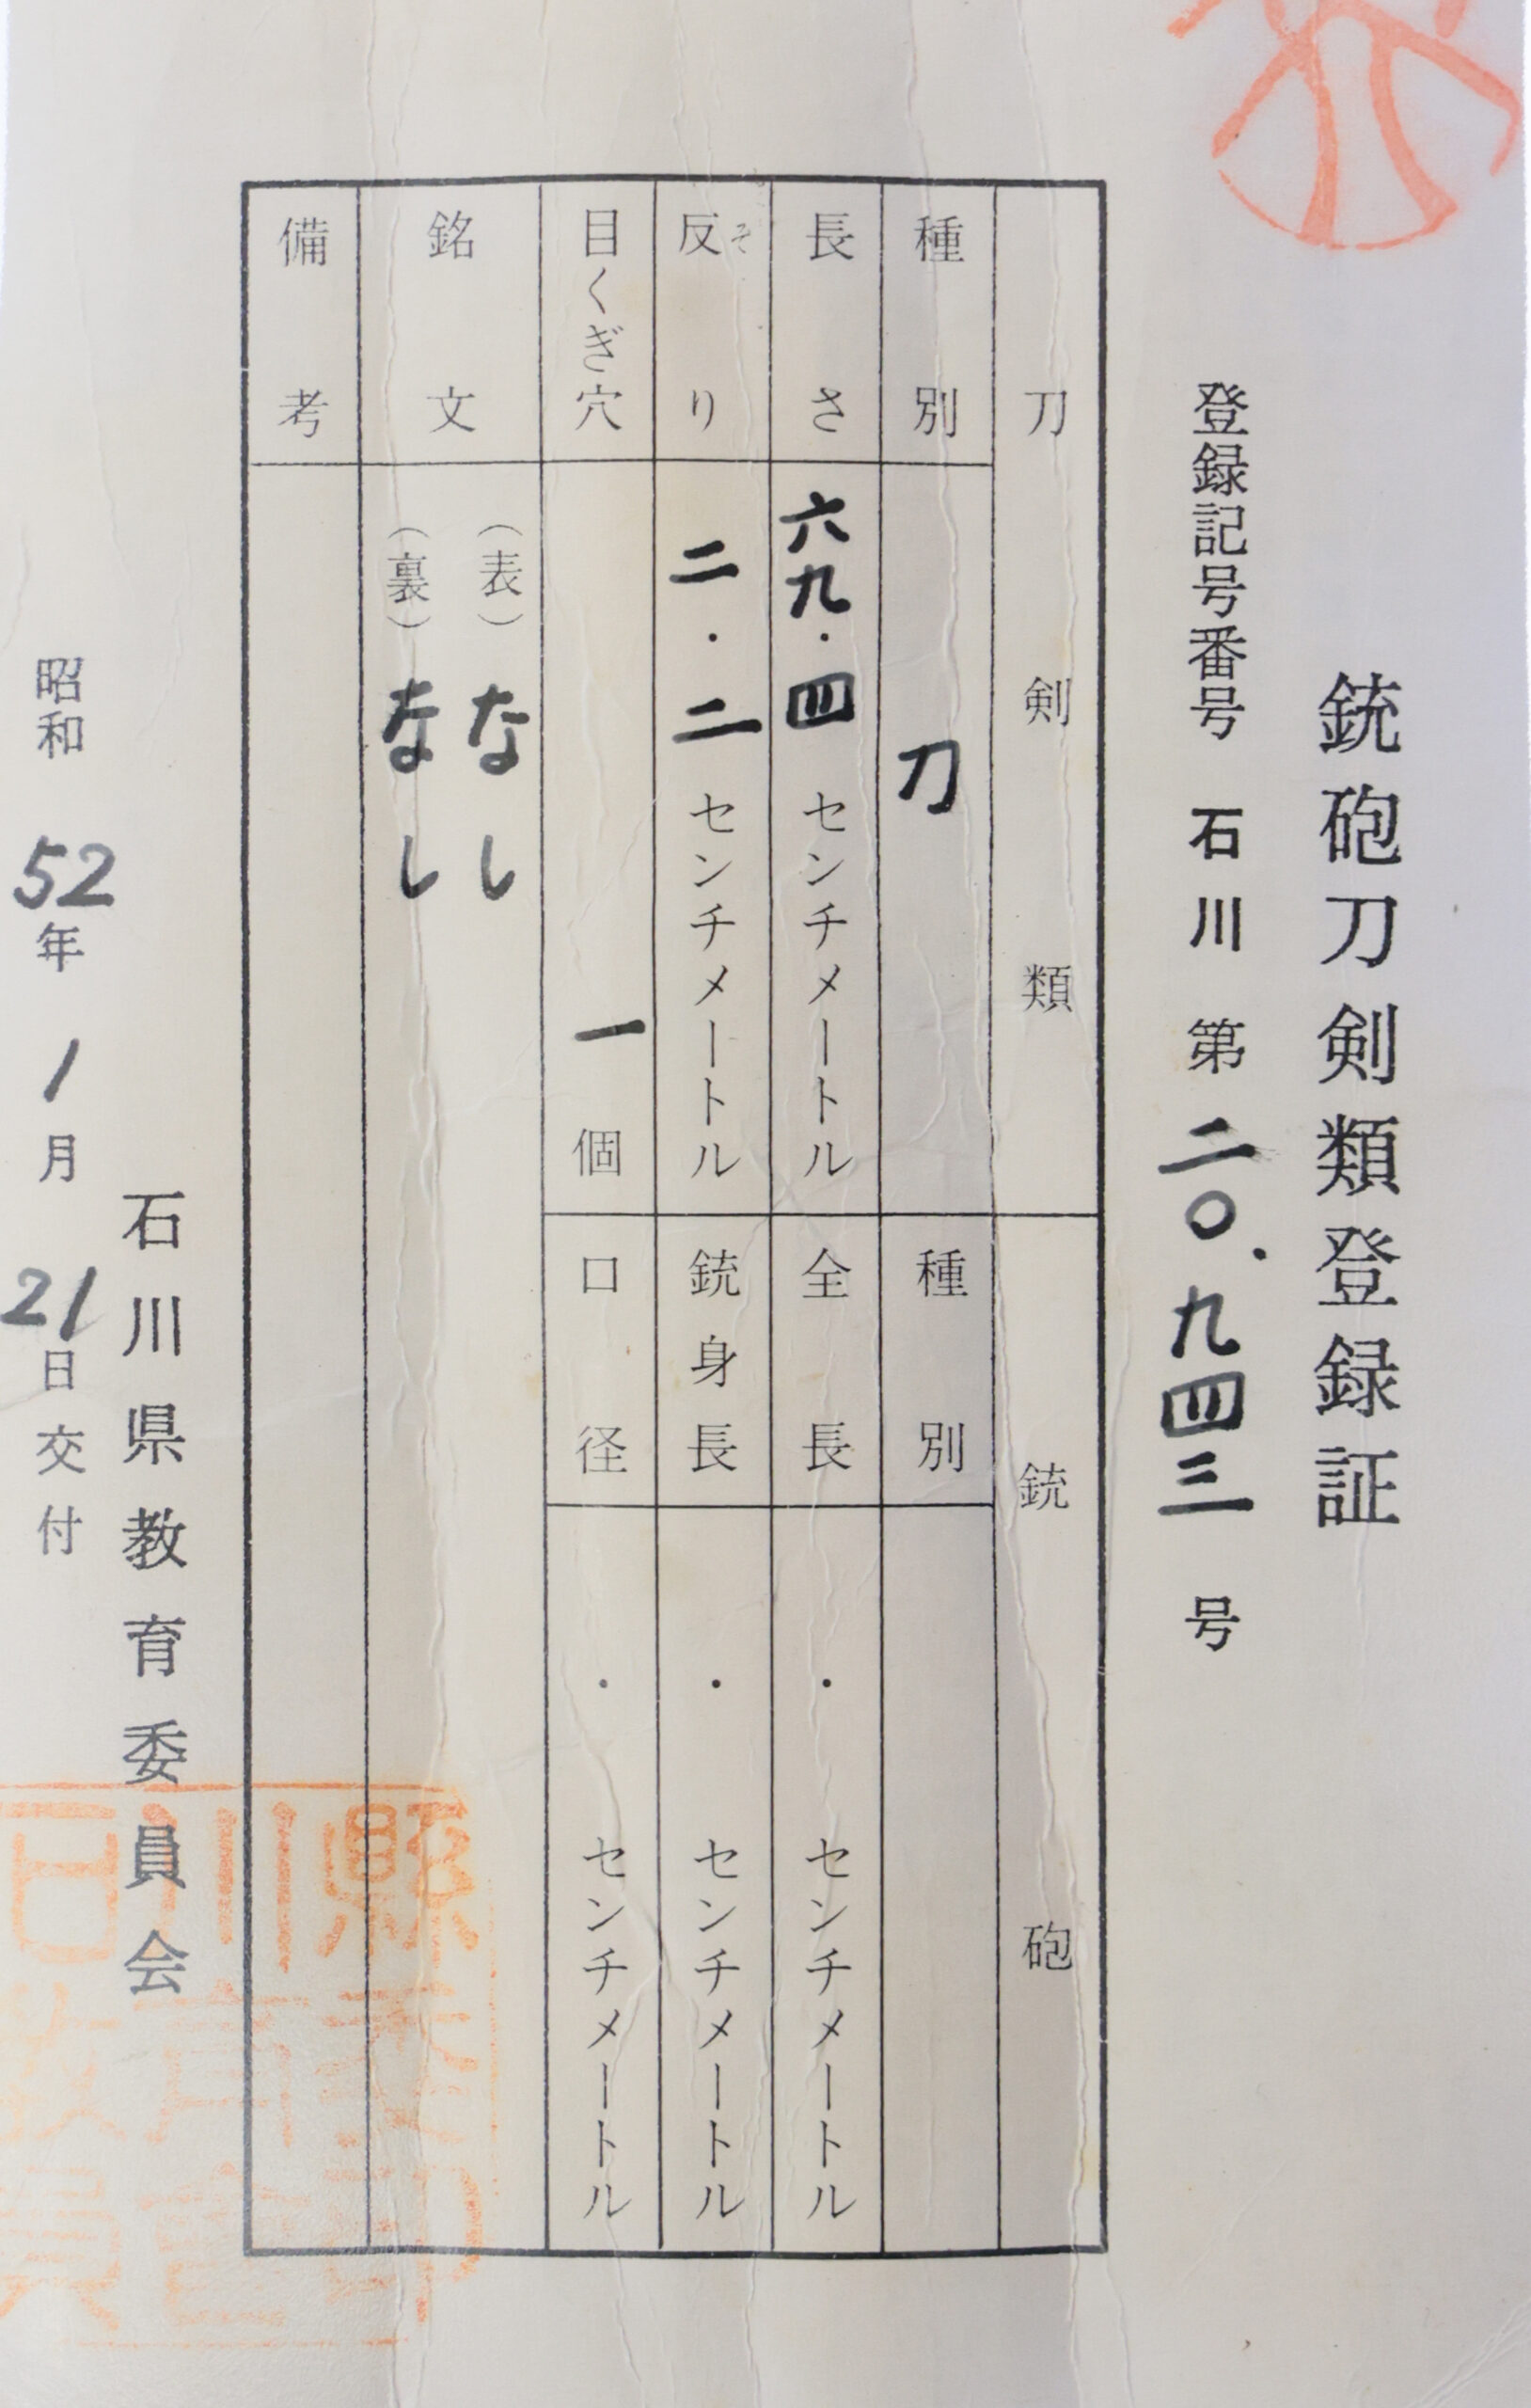 銃砲刀剣類登録証
登録記号番号 石川 第 二〇.九四三 号
刀剣類 銃砲
種別 刀 種別
長さ 六九・四 センチメートル 全長 ・ センチメートル
反り そ 二・二 センチメートル 銃身長 ・ センチメートル
目くぎ穴 一 個 口径 ・ センチメートル
銘文 (表) なし
(裏) なし
備考
石川県教育委員会
昭和 52年 1月 21日交付